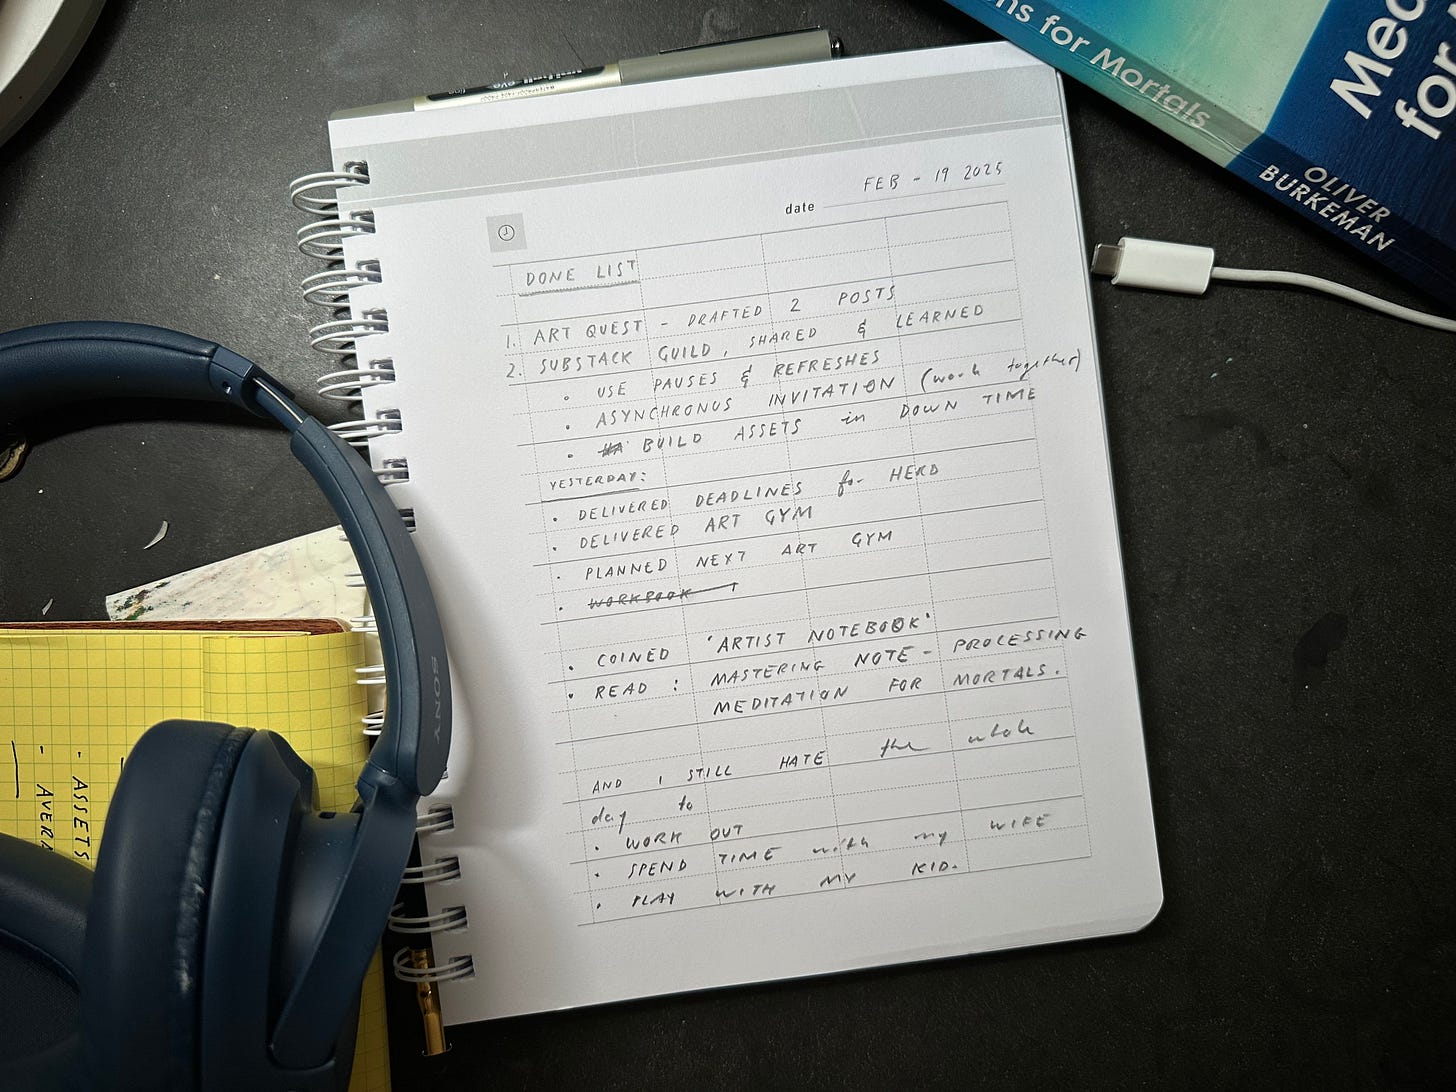 uniball eye fine
WATERPROOF/FADE PROOF
ns for Mortals
Med
for
OLIVER
BURKEMAN
FEB - 19 2025
date
DONE LIST
1. ART QUEST - DRAFTED 2 POSTS
2. SUBSTACK GUILD, SHARED & LEARNED
• USE PAUSES & REFRESHES
• ASYNCHRONUS INVITATION (work together)
• BUILD ASSETS in DOWN TIME
YESTERDAY:
• DELIVERED DEADLINES for HERD
• DELIVERED ART GYM
• PLANNED NEXT ART GYM
• WORKBOOK
• COINED 'ARTIST NOTEBOOK'
• READ : MASTERING NOTE - PROCESSING
MEDITATION FOR MORTALS.
AND I STILL HATE the whole
day to
• WORK OUT
• SPEND TIME with my WIFE
• PLAY WITH MY KID.
SONY
- ASSETS
- AVER